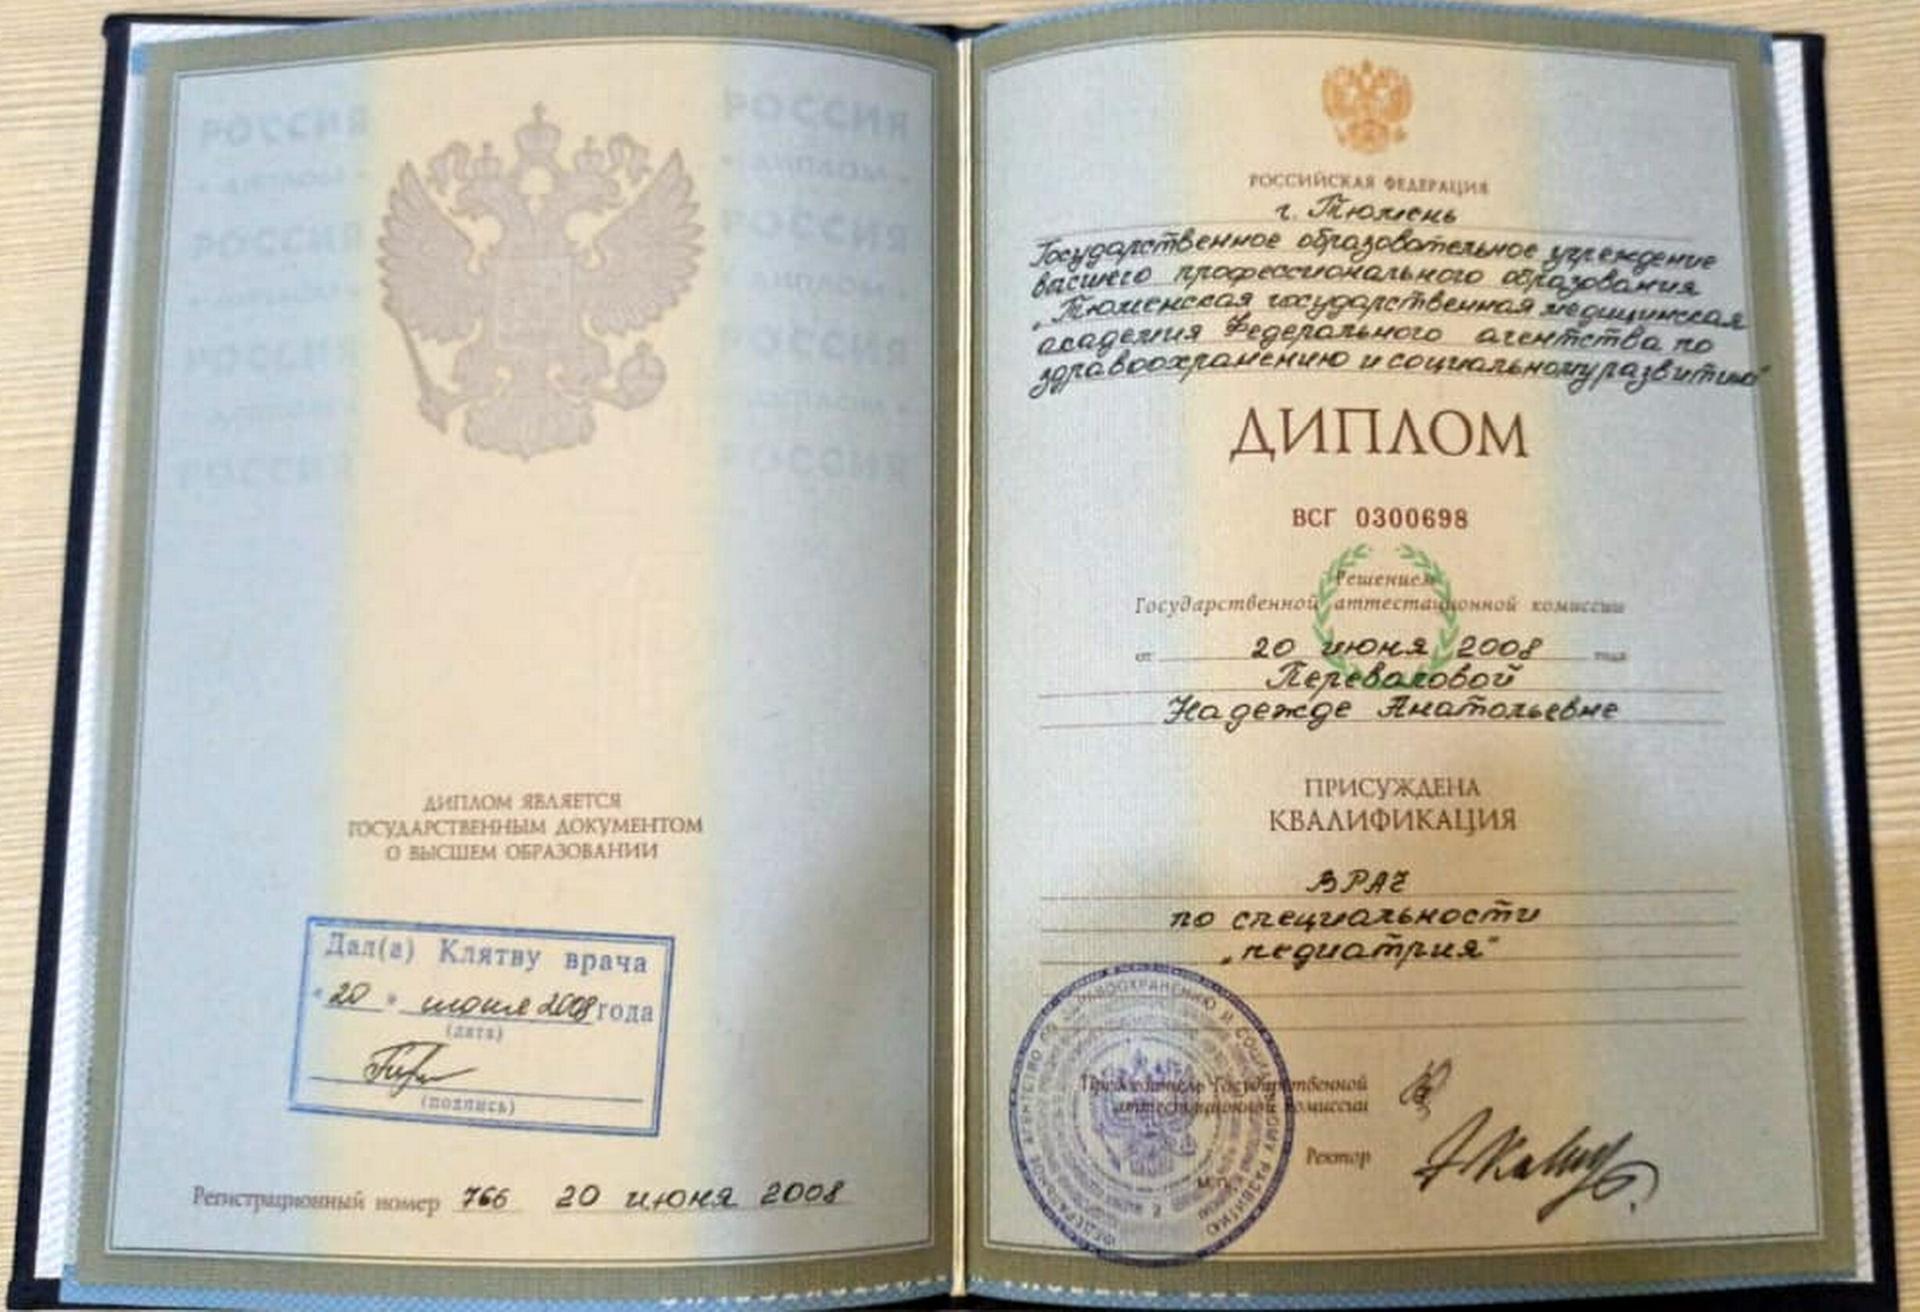 РОССИЯ
РОССИЯ
• ДИПЛОМ •
• ДИПЛОМ •
РОССИЯ
РОССИЯ
• ДИПЛОМ •
• ДИПЛОМ •
РОССИЯ
РОССИЯ
• ДИПЛОМ •
• ДИПЛОМ •
РОССИЯ
РОССИЯ
ДИПЛОМ ЯВЛЯЕТСЯ
ГОСУДАРСТВЕННЫМ ДОКУМЕНТОМ
О ВЫСШЕМ ОБРАЗОВАНИИ
Дал(а) Клятву врача
"20" июня 2008 года
(дата)
(подпись)
Регистрационный номер 766 20 июня 2008
РОССИЙСКАЯ ФЕДЕРАЦИЯ
г. Тюмень
Государственное образовательное учреждение
высшего профессионального образования
„Тюменская государственная медицинская
академия Федерального агентства по
здравоохранению и социальному развитию"
ДИПЛОМ
ВСГ 0300698
Решением
Государственной аттестационной комиссии
от 20 июня 2008 года
Переваловой
Надежде Анатольевне
ПРИСУЖДЕНА
КВАЛИФИКАЦИЯ
ВРАЧ
по специальности
„педиатрия"
Председатель Государственной
аттестационной комиссии
Ректор
М.П.
ФЕДЕРАЛЬНОЕ АГЕНТСТВО ПО ЗДРАВООХРАНЕНИЮ И СОЦИАЛЬНОМУ РАЗВИТИЮ